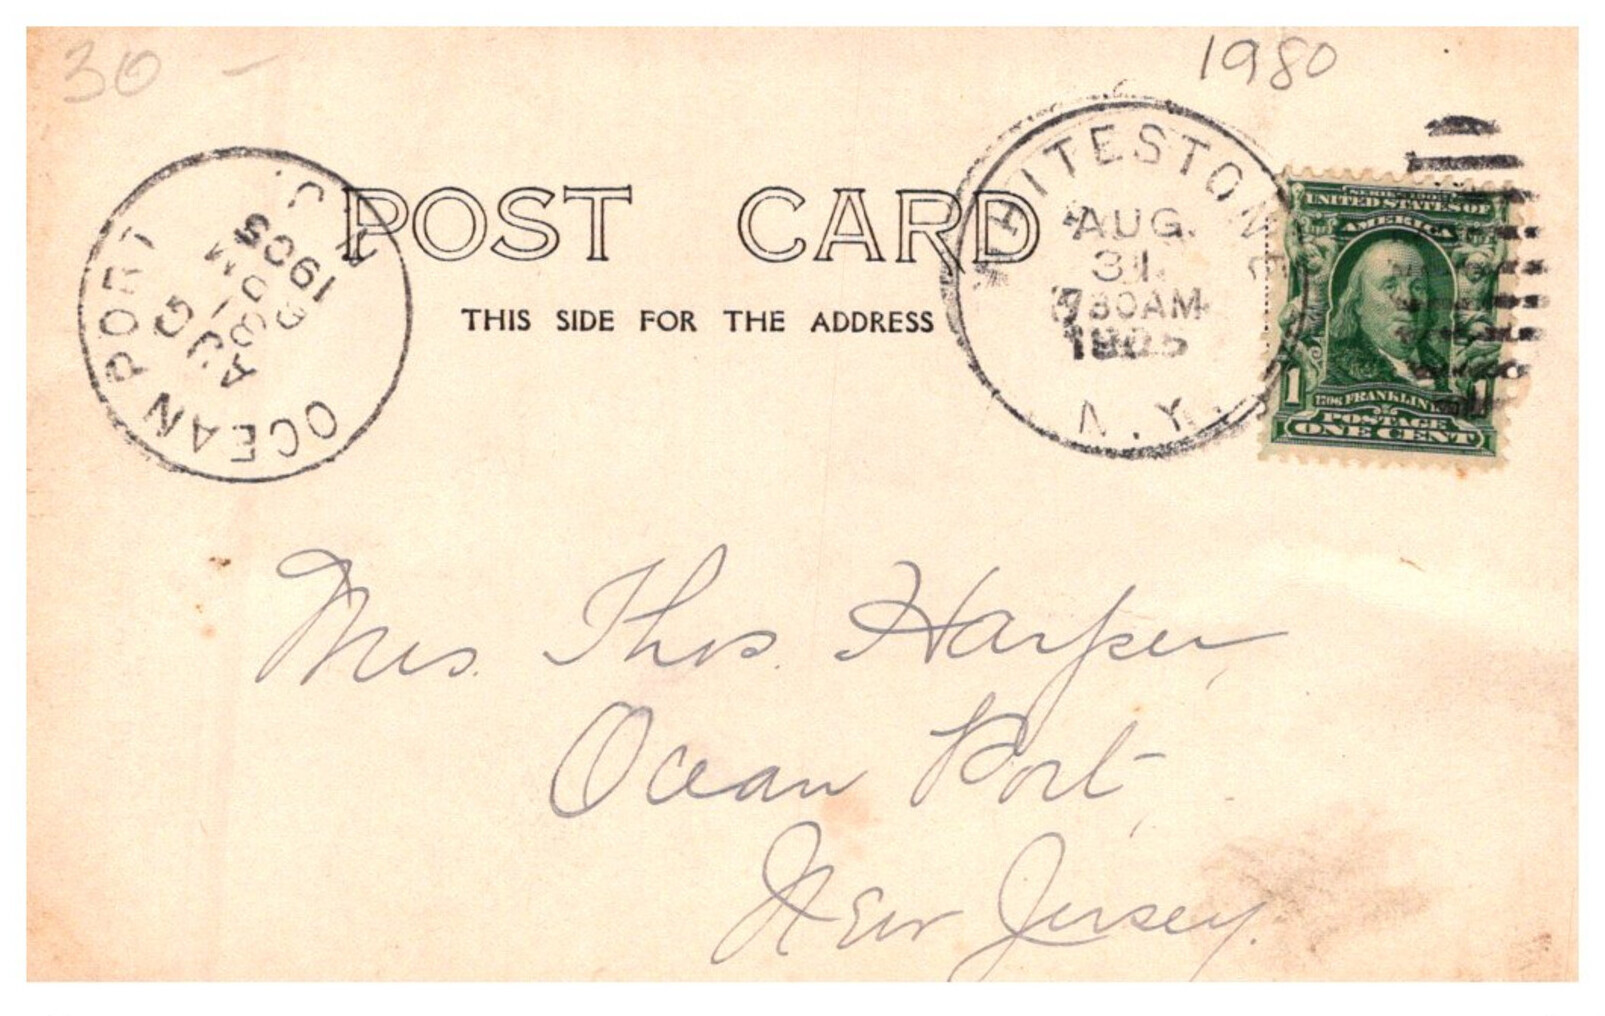 30 -
1980
POST CARD
THIS SIDE FOR THE ADDRESS
OCEAN PORT N.J.
AUG
1905
WHITESTONE
AUG.
31
730AM
1905
N.Y.
SERIES 1902
UNITED STATES OF
AMERICA
1 1
1706 FRANKLIN
POSTAGE
ONE CENT
Mrs. Thos. Harper,
Ocean Port,
New Jersey.